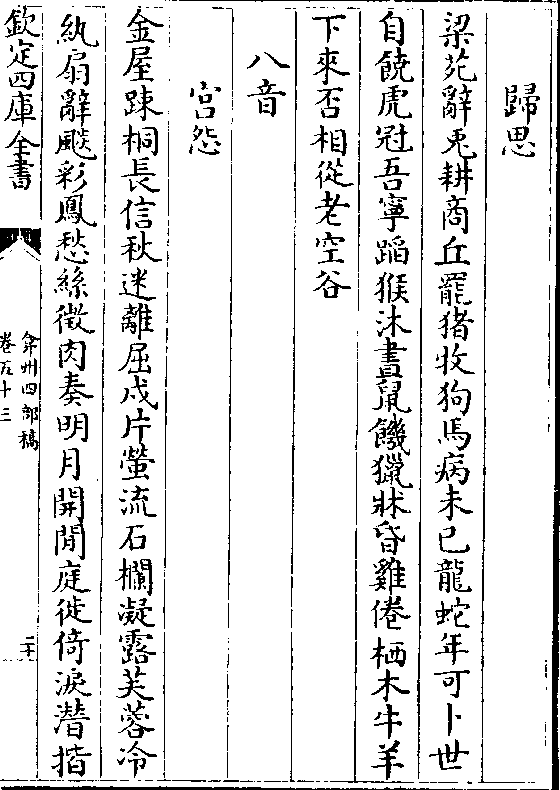 歸思
梁苑辭兎耕商丘罷猪牧狗馬病未已龍蛇年可卜世
自饒虎冠吾寧蹈猴沐晝鼠饑獵牀昏雞倦栖木牛羊
下來否相從老空谷
八音
宫怨
金屋踈桐長信秋迷離屈戍片螢流石欄凝露芙蓉冷
紈扇辭颷彩鳳愁絲徴肉奏明月開閒庭徙倚淚濳揩
欽定四庫全書
弇州四部稿
卷五十三
二十